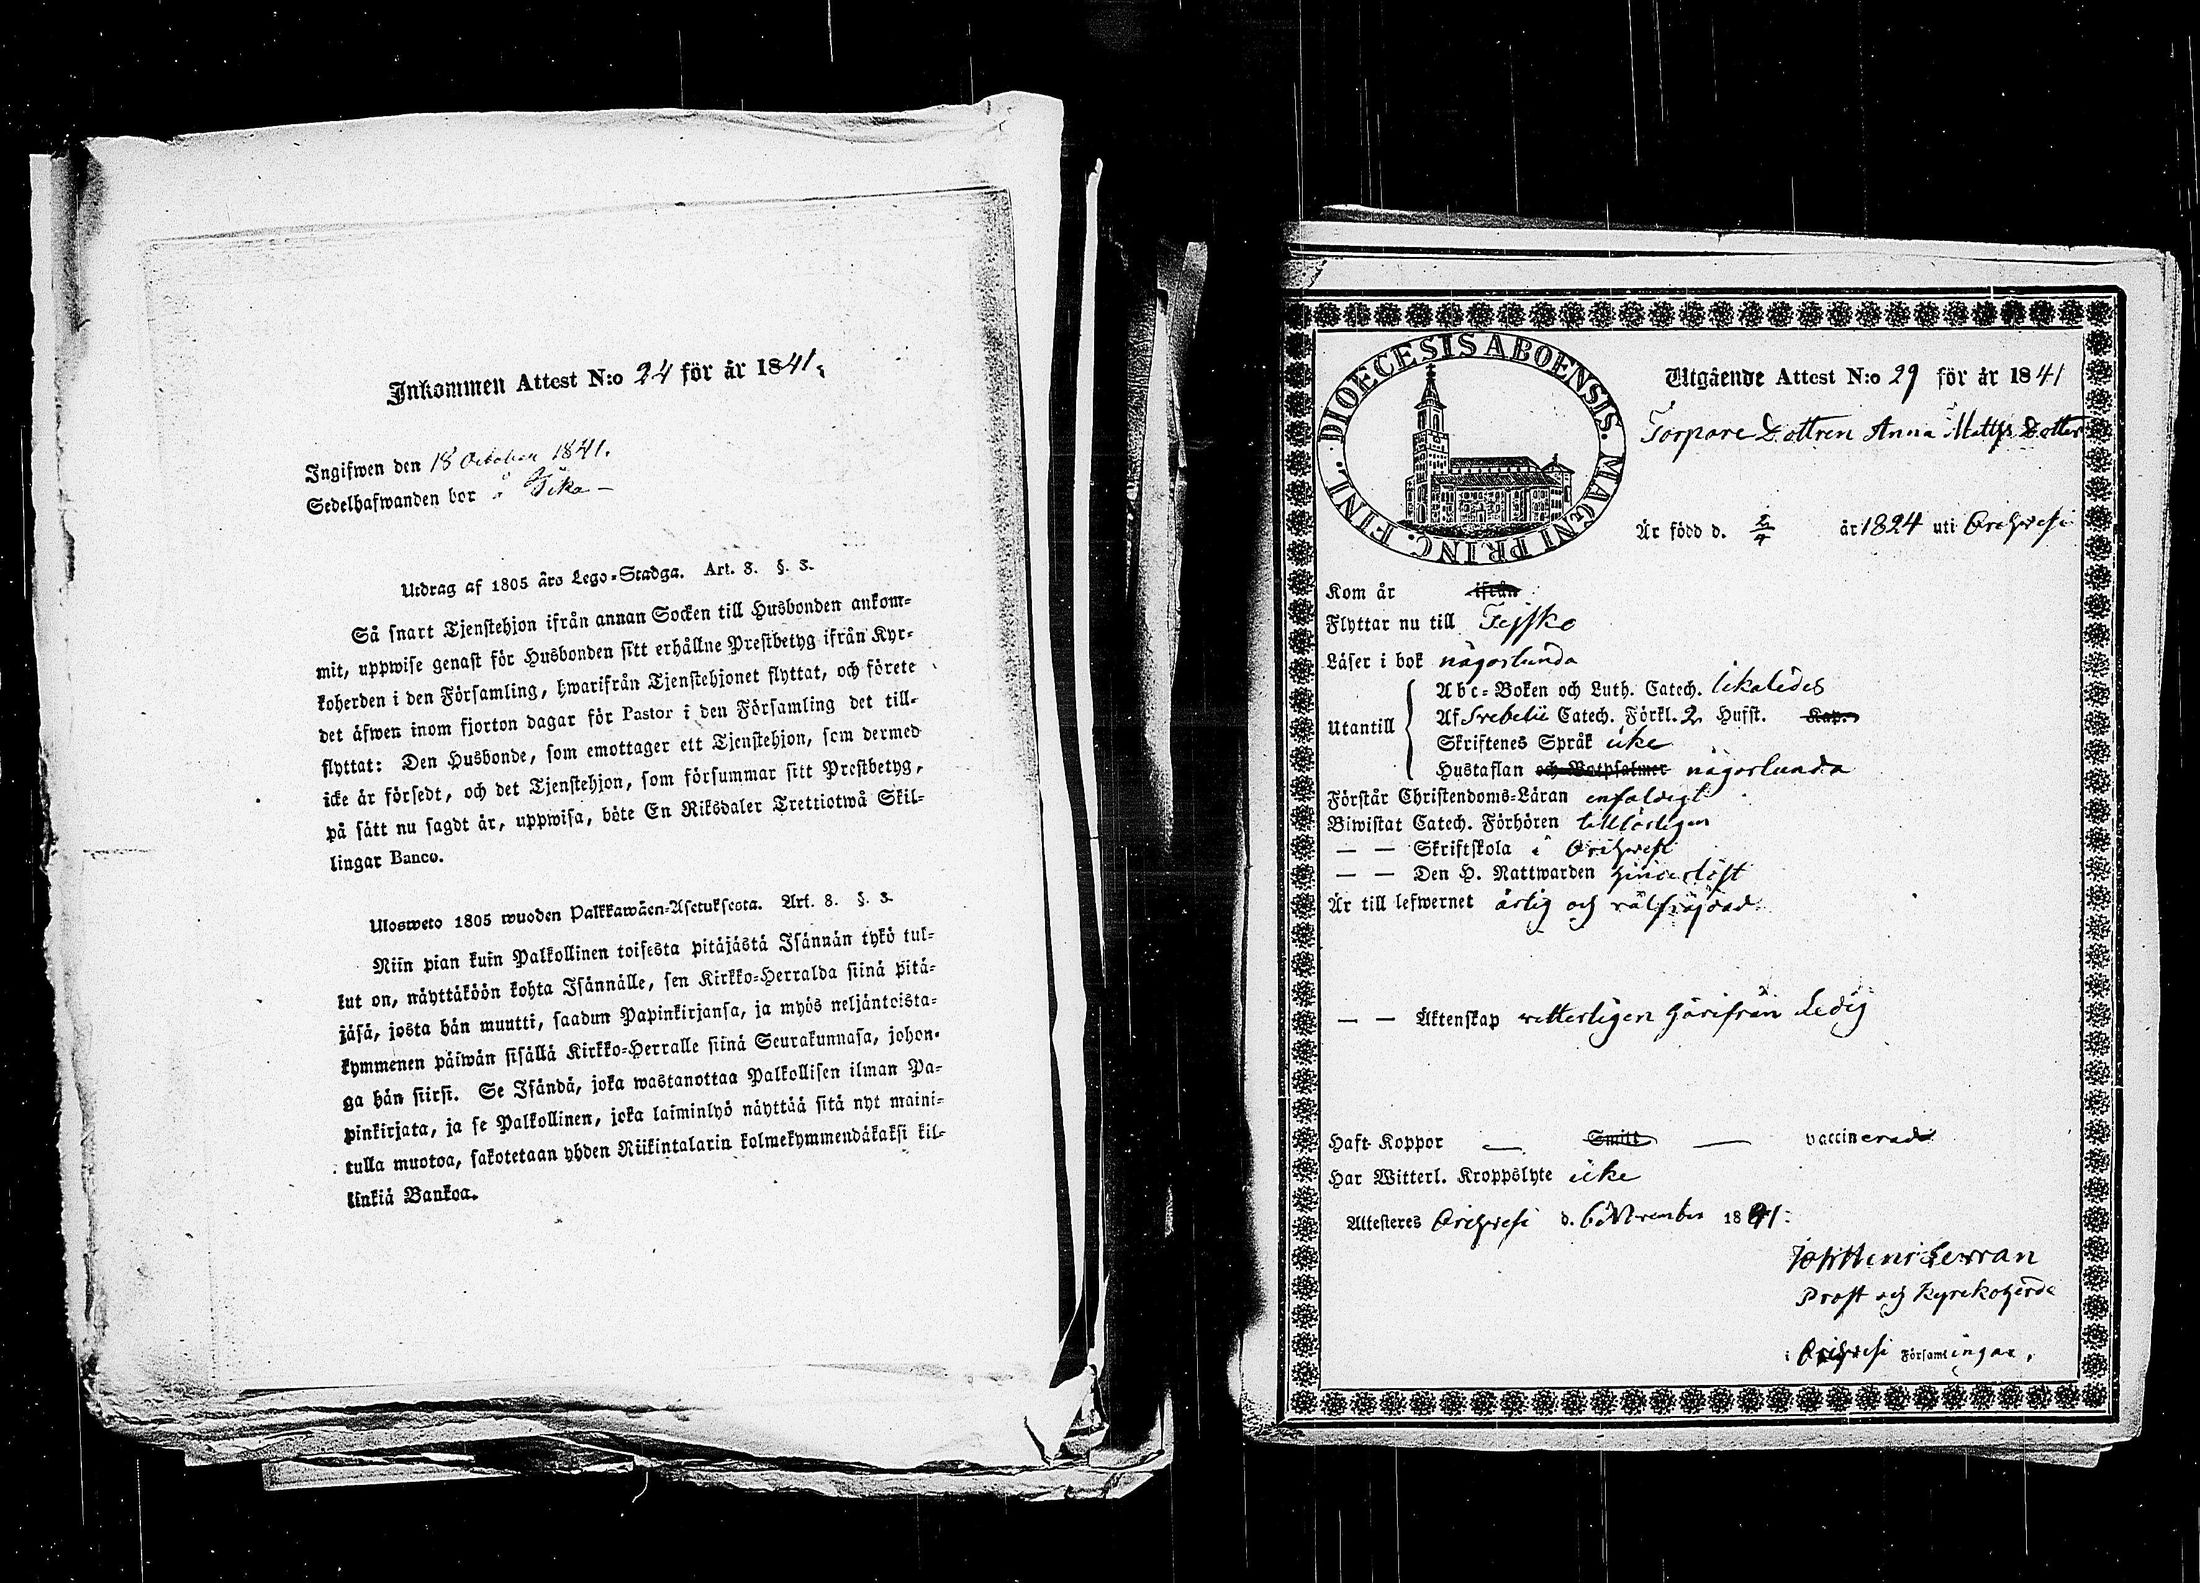 Inkommen Attest N:o 24 för år 1841.
Ingifwen den 18 October 1841.
Sedelhafwanden bor i
Utdrag af 1805 års Lego-Stadga. Art. 8. §. 3.
Så snart Tjenstehjon ifrån annan Socken till Husbonden ankom-
mit, uppwise genast för Husbonden sitt erhållne Prestbetyg ifrån Kyr-
koherden i den Församling, hwarifrån Tjenstehjonet flyttat, och förete
det äfwen inom fjorton dagar för Pastor i den Församling det till-
flyttat: Den Husbonde, som emottager ett Tjenstehjon, som dermed
icke är försedt, och det Tjenstehjon, som försummar sitt Prestbetyg,
på sätt nu sagdt är, uppwisa, böte En Riksdaler Trettiotwå Skil-
lingar Banco.
Ulosweto 1805 wuoden Palkkawäen-Asetuksesta. Art. 8. §. 3.
Niin pian kuin Palkollinen toisesta pitäjästä Isännän tykö tul-
lut on, näyttäköön kohta Isännälle, sen Kirkko-Herralda siinä pitä-
jäsä, josta hän muutti, saadun Papinkirjansa, ja myös neljäntoista-
kymmenen päiwän sisällä Kirkko-Herralle siinä Seurakunnasa, johon-
ga hän siirsi. Se Isändä, joka wastanottaa Palkollisen ilman Pa-
pinkirjata, ja se Palkollinen, joka laiminlyö näyttää sitä nyt maini-
tulla muotoa, sakotetaan yhden Riikintalarin kolmekymmendäkaksi kil-
linkiä Bankoa.
DIOECESIS ABOENSIS. MAGNI PRINC. FINL.
Utgående Attest N:o 29 för år 1841
Torpare Dottren Anna Matts Dotter
Är född d. 2/4 år 1824 uti Orihvesi
Kom år ifrån
Flyttar nu till Teisko
Läser i bok någorlunda
Utantill
Abc-Boken och Luth. Catech. likaledes
Af Svebelii Catech. Förkl. 2 Hufst. Kap.
Skriftenes Språk icke
Hustaflan och Botpsalmer någorlunda
Förstår Christendoms-Läran enfaldigt
Biwistat Catech. Förhören tillbörligen
— — Skriftskola i Orihvesi
— — Den H. Nattwarden hinderlöst
Är till lefwernet ärlig och välfräjdad
— — Äktenskap vetterligen härifrån Ledig
Haft Koppor — Smitt — vaccinerad
Har Witterl. Kroppslyte icke
Attesteres Orihvesi d. 6 November 1841.
Prost och Kyrkoherde
i Orihvesi Församlingar.